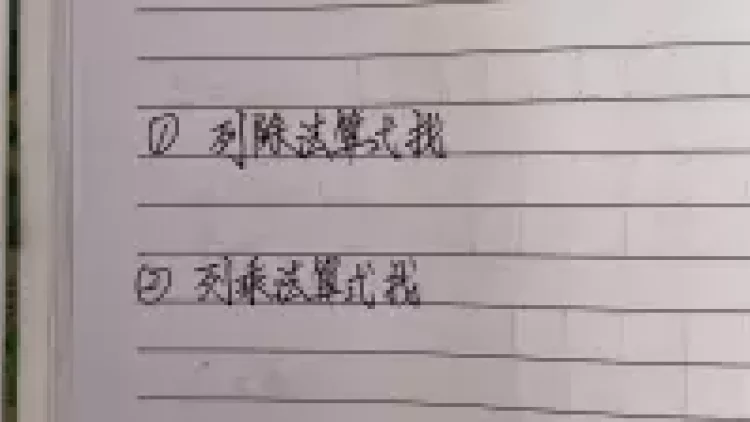 ① 列除法算式找
② 列乘法算式找